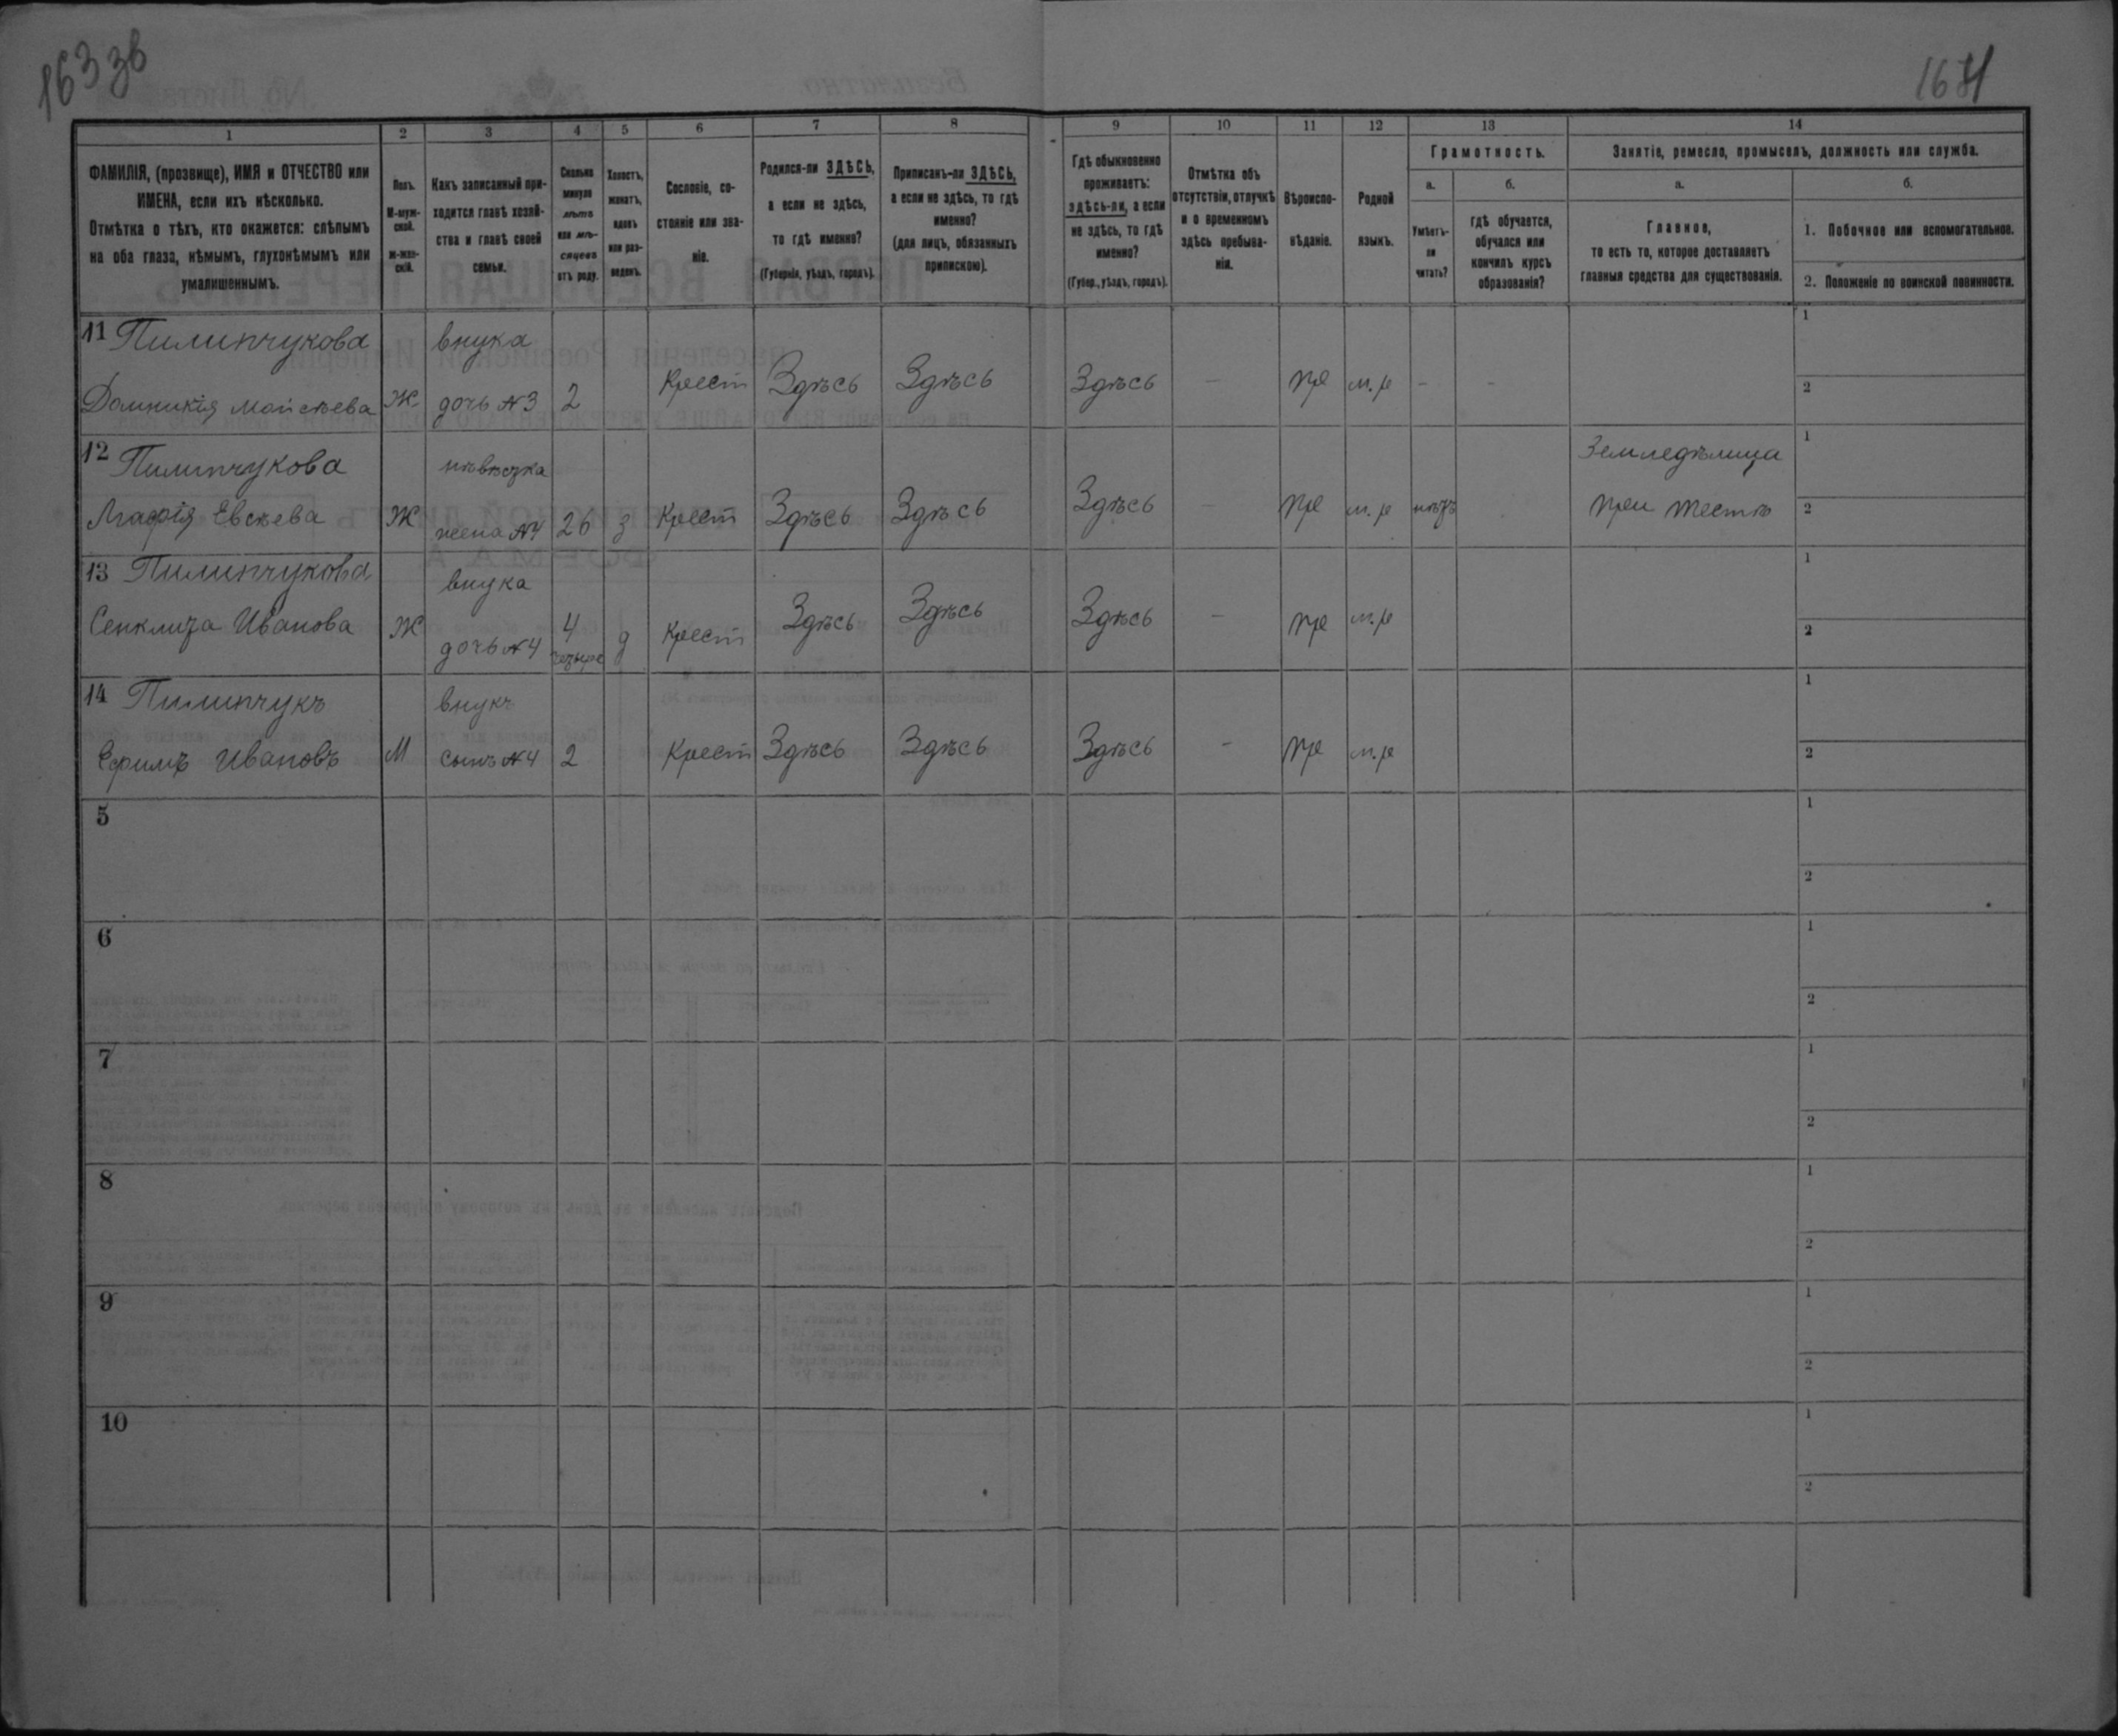 163 зв
164
1
2
3
4
5
6
7
8
9
10
11
12
13
14
ФАМИЛІЯ, (прозвище), ИМЯ и ОТЧЕСТВО или
ИМЕНА, если ихъ нѣсколько.
Отмѣтка о тѣхъ, кто окажется: слѣпымъ
на оба глаза, нѣмымъ, глухонѣмымъ или
умалишеннымъ.
Полъ.
М-муж-
ской.
ж-жен-
скій.
Какъ записанный при-
ходится главѣ хозяй-
ства и главѣ своей
семьи.
Сколько
минуло
лѣтъ
или мѣ-
сяцевъ
отъ роду.
Холостъ,
женатъ,
вдовъ
или раз-
веденъ.
Сословіе, со-
стояніе или зва-
ніе.
Родился-ли ЗДѢСЬ,
а если не здѣсь,
то гдѣ именно?
(Губернія, уѣздъ, городъ).
Приписанъ-ли ЗДѢСЬ,
а если не здѣсь, то гдѣ
именно?
(для лицъ, обязанныхъ
припискою).
Гдѣ обыкновенно
проживаетъ:
здѣсь-ли, а если
не здѣсь, то гдѣ
именно?
(Губер., уѣздъ, городъ).
Отмѣтка объ
отсутствіи, отлучкѣ
и о временномъ
здѣсь пребыва-
ніи.
Вѣроиспо-
вѣданіе.
Родной
языкъ.
Грамотность.
а.
Умѣетъ-
ли
читать?
б.
гдѣ обучается,
обучался или
кончилъ курсъ
образованія?
Занятіе, ремесло, промыселъ, должность или служба.
а.
Главное,
то есть то, которое доставляетъ
главныя средства для существованія.
б.
1. Побочное или вспомогательное.
2. Положеніе по воинской повинности.
11 Пилипчукова внука 1
Домникія Мойсѣева Ж дочь №3 2 Крест Здѣсь Здѣсь Здѣсь - пр м.р - - 2
12 Пилипчукова невѣстка Земледѣлица 1
Агафія Евсѣева Ж жена №4 26 з Крест Здѣсь Здѣсь Здѣсь - пр м.р нѣтъ при тестѣ 2
13 Пилипчукова внука 1
Ж дочь №4 4 четыре д Крест Здѣсь Здѣсь Здѣсь - пр м.р 2
14 Пилипчукъ внукъ 1
Ефимъ Ивановъ М сынъ №4 2 Крест Здѣсь Здѣсь Здѣсь - пр м.р 2
5 1
2
6 1
2
7 1
2
8 1
2
9 1
2
10 1
2